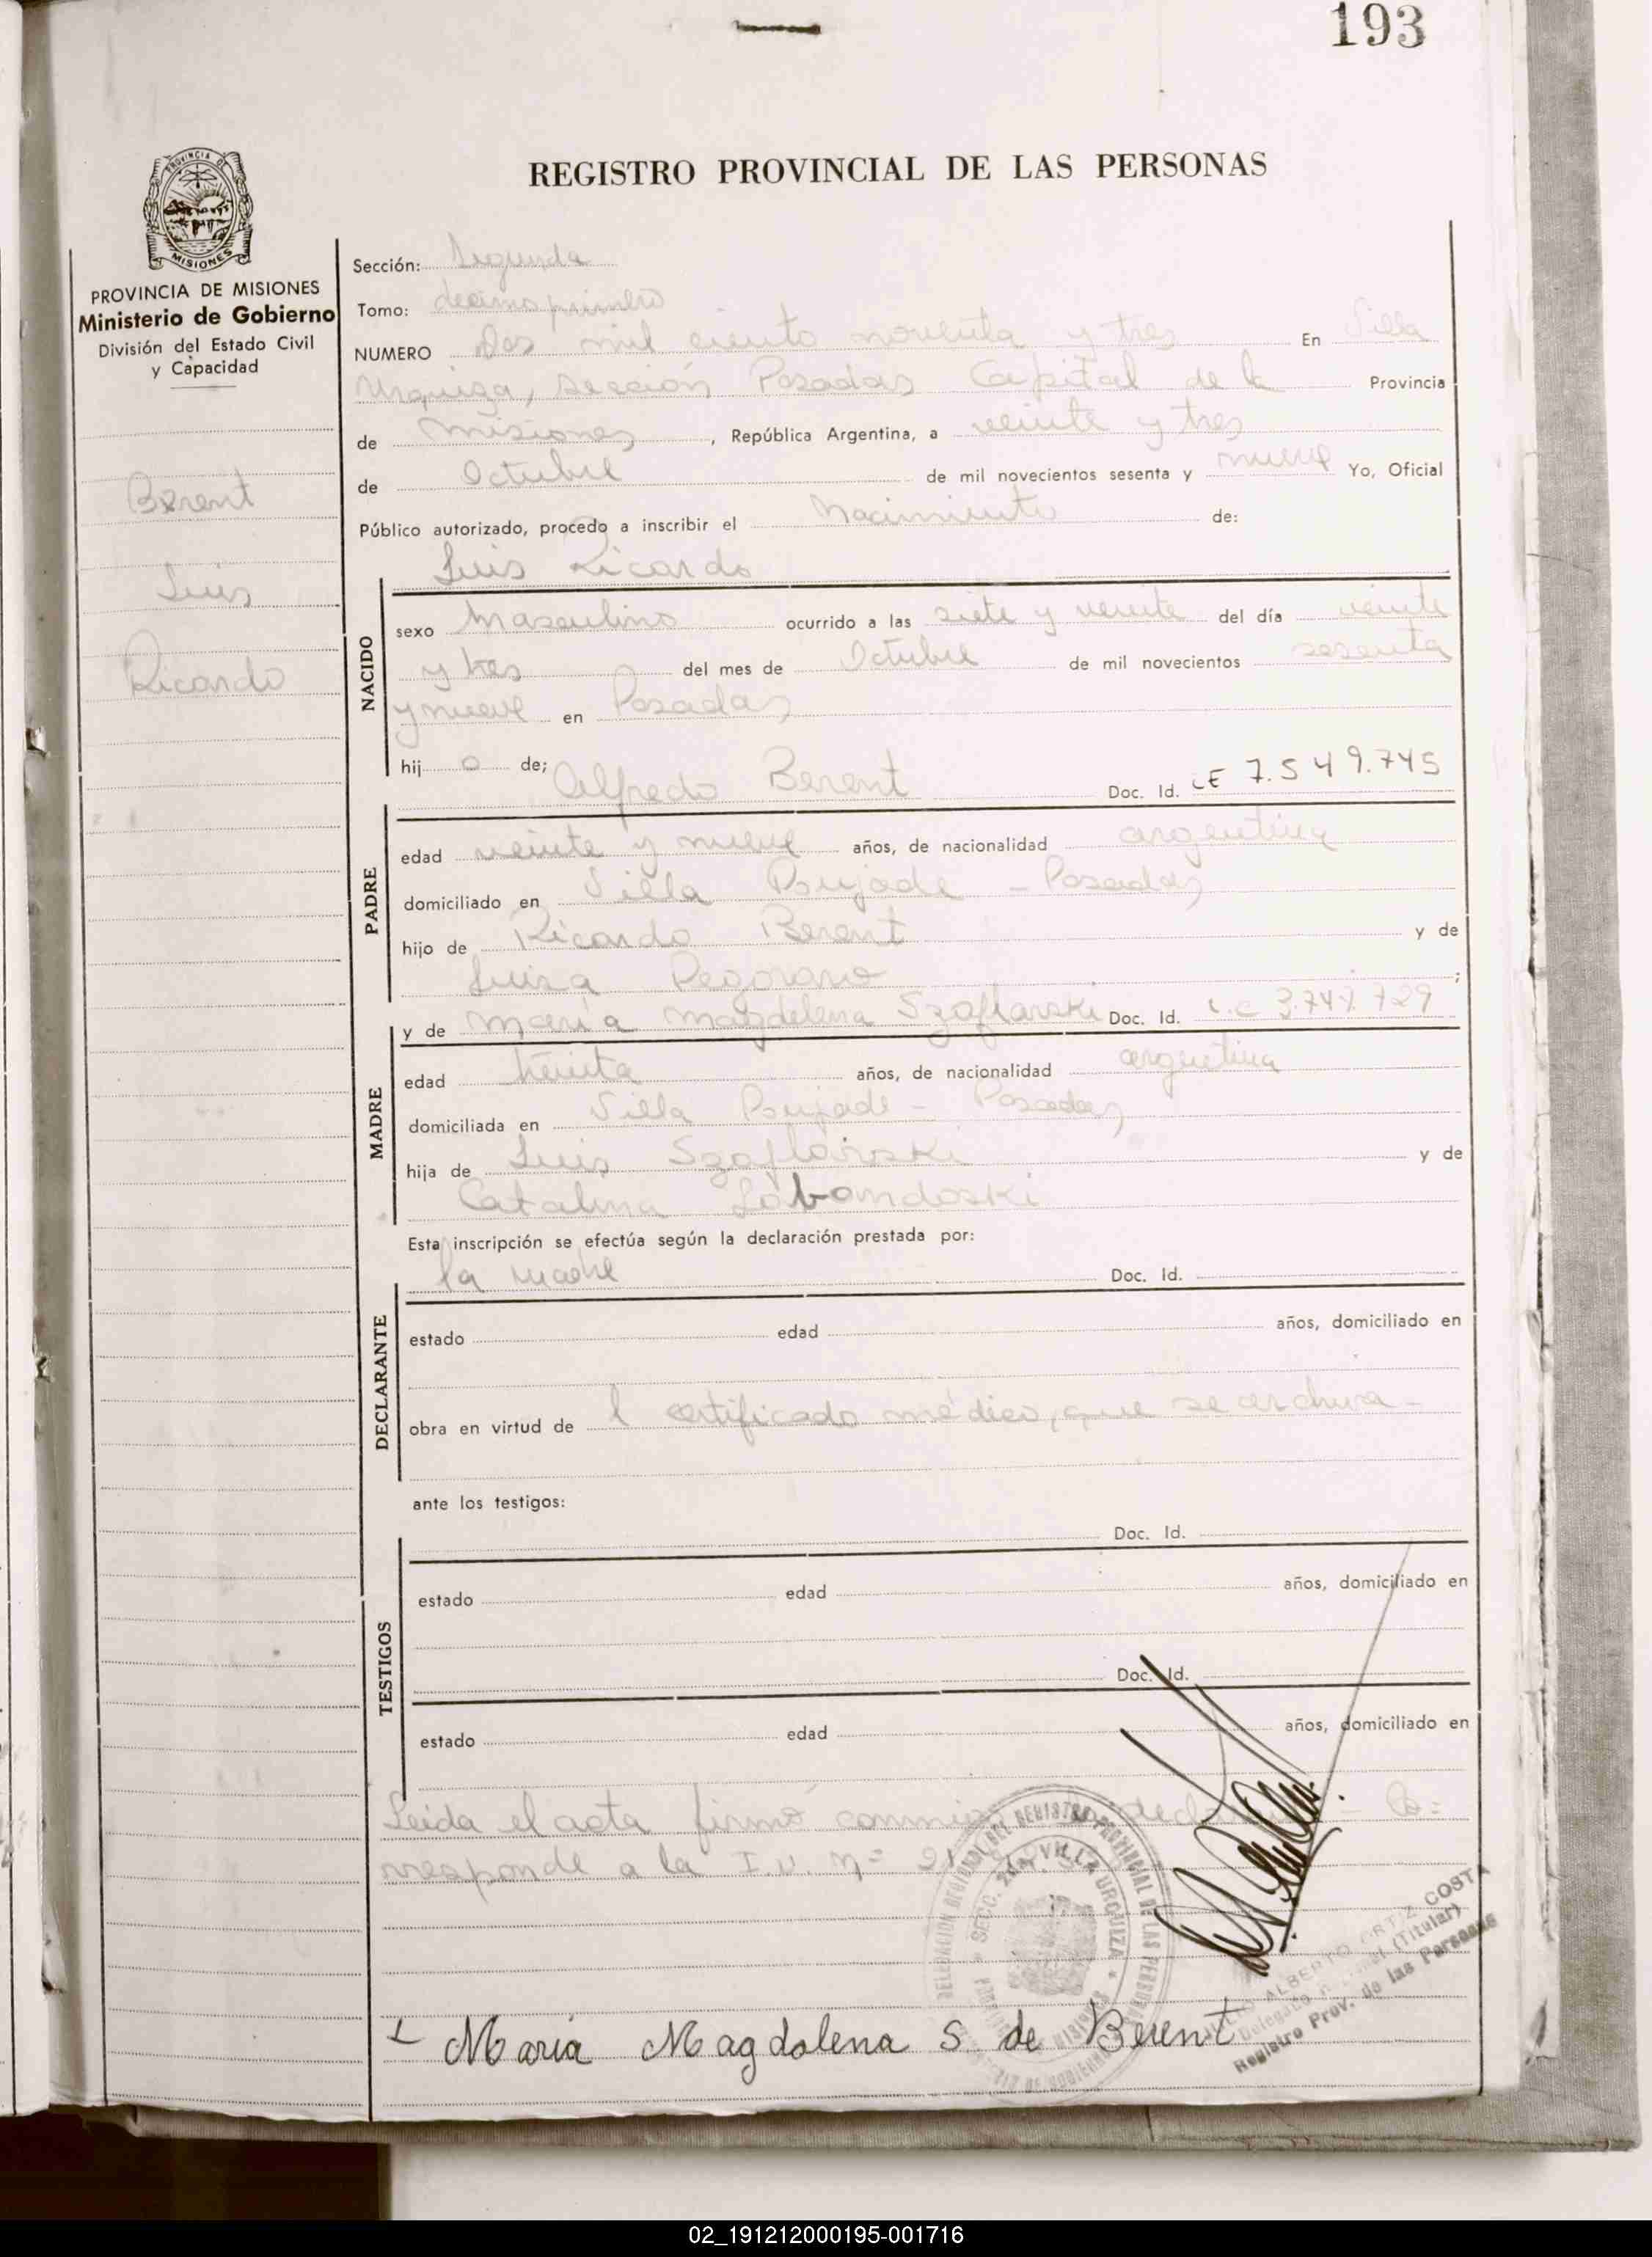 193
REGISTRO PROVINCIAL DE LAS PERSONAS
PROVINCIA DE
MISIONES
PROVINCIA DE MISIONES
Ministerio de Gobierno
División del Estado Civil
y Capacidad
Berent
Luis
Ricardo
Sección: Segunda
Tomo: decimoprimero
NUMERO Dos mil ciento noventa y tres En Villa
Urquiza, Sección Posadas Capital de la Provincia
de Misiones, República Argentina, a veinte y tres
de Octubre de mil novecientos sesenta y nueve Yo, Oficial
Público autorizado, procedo a inscribir el Nacimiento de:
Luis Ricardo
NACIDO
sexo Masculino ocurrido a las siete y veinte del día veinte
y tres del mes de Octubre de mil novecientos sesenta
y nueve en Posadas
hij o de; Alfredo Berent Doc. Id. LE 7.549.745
PADRE
edad veinte y nueve años, de nacionalidad argentina
domiciliado en Villa Poujade - Posadas
hijo de Ricardo Berent y de
Luisa Pegoraro ;
y de María Magdelena Szaflarski Doc. Id. L.C 3.747.729
MADRE
edad treinta años, de nacionalidad argentina
domiciliada en Villa Poujade - Posadas
hija de Luis Szaflarski y de
Catalina Lobandoski
Esta inscripción se efectúa según la declaración prestada por:
la madre Doc. Id.
DECLARANTE
estado edad años, domiciliado en
obra en virtud de l certificado médico, que se archiva -
ante los testigos:
Doc. Id.
TESTIGOS
estado edad años, domiciliado en
Doc. Id.
estado edad años, domiciliado en
Leida el acta firmó conmigo - Co=
rresponde a la I.N. Nº
DELEGACION REGIONAL DEL REGISTRO PROVINCIAL DE LAS PERSONAS
SECC. 2da. VILLA URQUIZA
ALBERTO ORTIZ COSTA
Delegado (Titular)
Registro Prov. de las Personas
María Magdalena S. de Berent
02_191212000195-001716